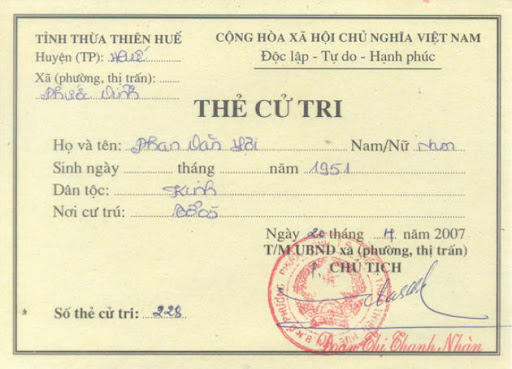 TỈNH THỪA THIÊN HUẾ
Huyện (TP): Huế
Xã (phường, thị trấn):
Phước Vĩnh
CỘNG HÒA XÃ HỘI CHỦ NGHĨA VIỆT NAM
Độc lập - Tự do - Hạnh phúc
THẺ CỬ TRI
Họ và tên: Phan Văn Hải Nam/Nữ Nam
Sinh ngày tháng năm 1951
Dân tộc: Kinh
Nơi cư trú:
Ngày 20 tháng 4 năm 2007
T/M.UBND xã (phường, thị trấn)
CHỦ TỊCH
Số thẻ cử tri: 228
Đoàn Thị Thanh Nhàn